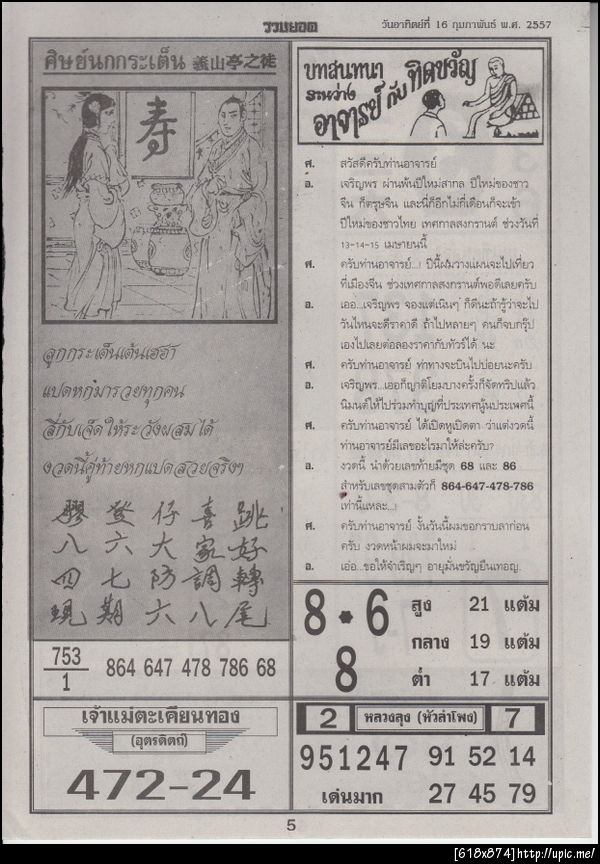 รวมยอด
วันอาทิตย์ที่ 16 กุมภาพันธ์ พ.ศ. 2557
ศิษย์นกกระเต็น 義山亭之徒
壽
ลูกกระเด็นเต้นเฮฮา
แปดหกมารวยทุกคน
สี่กับเจ็ดให้ระวังผสมได้
งวดนี้คู่ท้ายหกแปดสวยจริงๆ
膠 登 仔 喜 跳
八 六 大 家 好
四 七 防 調 轉
現 期 六 八 尾
753
1
864 647 478 786 68
เจ้าแม่ตะเคียนทอง
(อุตรดิตถ์)
472-24
บทสนทนา
ระหว่าง
อาจารย์ กับ ทิดขวัญ
ศ. สวัสดีครับท่านอาจารย์
อ. เจริญพร ผ่านพ้นปีใหม่สากล ปีใหม่ของชาว
จีน ก็ตรุษจีน และนี่ก็อีกไม่กี่เดือนก็จะเข้า
ปีใหม่ของชาวไทย เทศกาลสงกรานต์ ช่วงวันที่
13-14-15 เมษายนนี้
ศ. ครับท่านอาจารย์...! ปีนี้ผมวางแผนจะไปเที่ยว
ที่เมืองจีน ช่วงเทศกาลสงกรานต์พอดีเลยครับ
อ. เออ...เจริญพร จองแต่เนินๆ ก็ดีนะถ้ารู้ว่าจะไป
วันไหนจะดีราคาดี ถ้าไปหลายๆ คนก็จบกรุ๊ป
เองไปเลยต่อลองราคากับทัวร์ได้ นะ
ศ. ครับท่านอาจารย์ ท่าทางจะบินไปบ่อยนะครับ
อ. เจริญพร...เออก็ญาติโยมบางครั้งก็จัดทริปแล้ว
นิมนต์ให้ไปร่วมทำบุญที่ประเทศนู้นประเพศนี้
ศ. ครับท่านอาจารย์ ได้เปิดหูเปิดตา ว่าแต่งวดนี้
ท่านอาจารย์มีเลขอะไรมาให้ล่ะครับ?
อ. งวดนี้ นำด้วยเลขท้ายมีชุด 68 และ 86
สำหรับเลขชุดสามตัวก็ 864-647-478-786
เท่านี้แหละ...!
ศ. ครับท่านอาจารย์ งั้นวันนี้ผมขอกราบลาก่อน
ครับ งวดหน้าผมจะมาใหม่
อ. เอ่อ...ขอให้จำเริญๆ อายุมั่นขวัญยืนเทอญ.
8 * 6
8
สูง 21 แต้ม
กลาง 19 แต้ม
ต่ำ 17 แต้ม
2 หลวงลุง (หัวลำโพง) 7
951247 91 52 14
เด่นมาก 27 45 79
5
[618x874]http://upic.me/